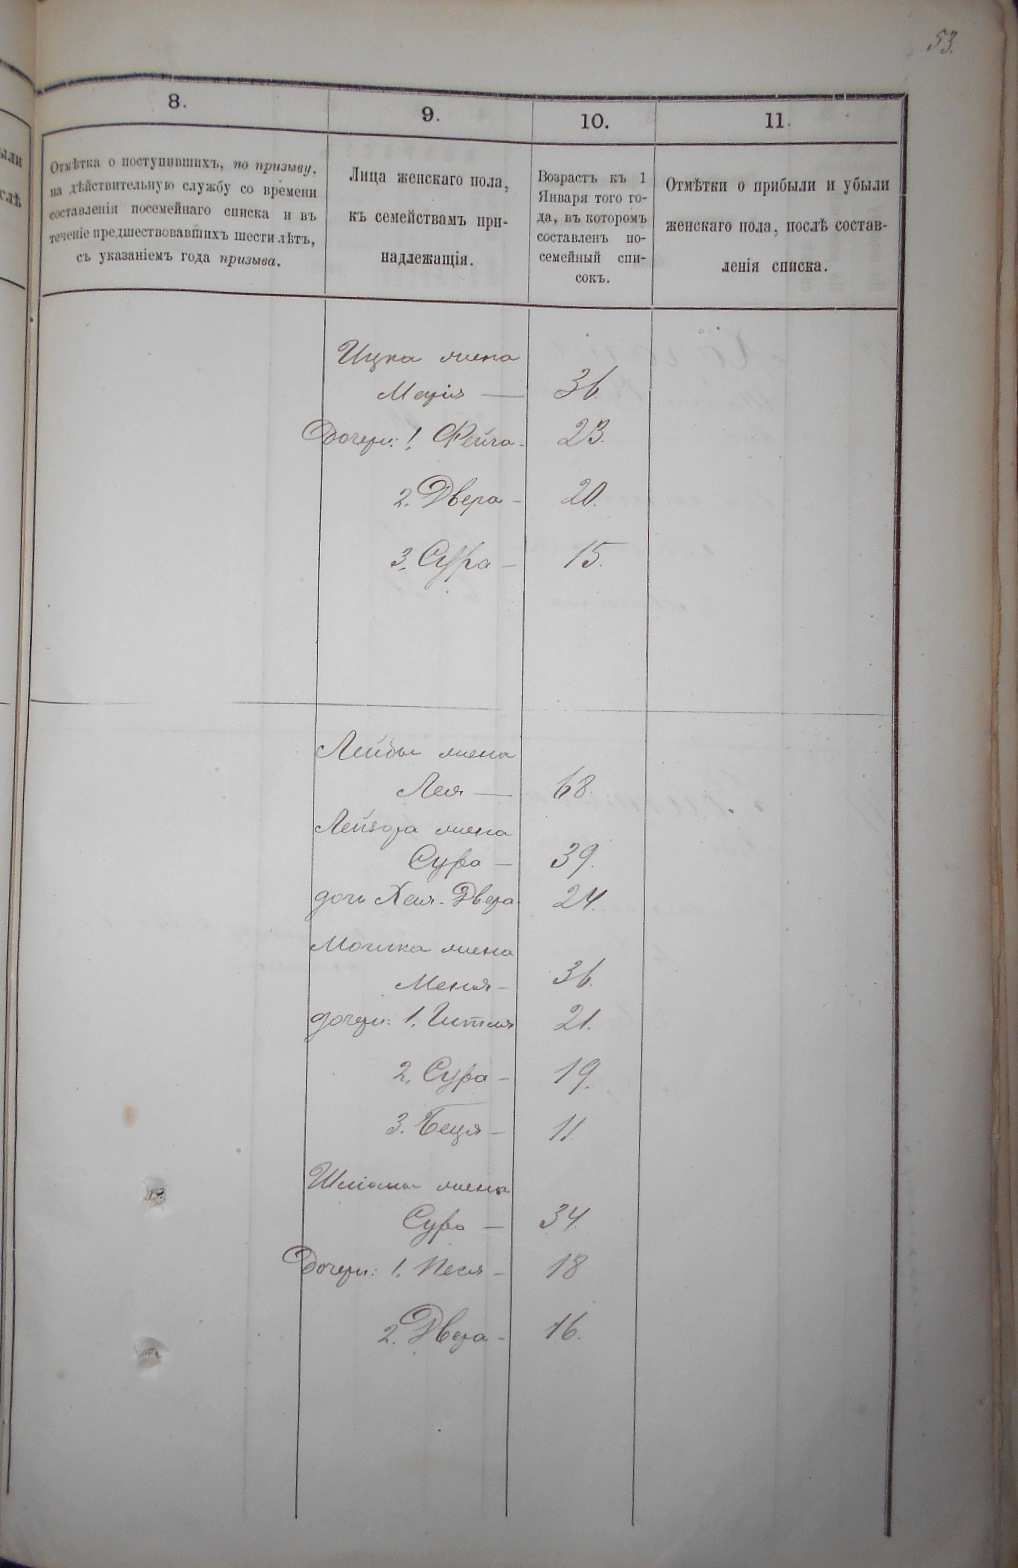 53.
8.
9.
10.
11.
Отмѣтка о поступившихъ, по призыву,
на дѣйствительную службу со времени
составленія посемейнаго списка и въ
теченіе предшествовавшихъ шести лѣтъ,
съ указаніемъ года призыва.
Лица женскаго пола,
къ семействамъ при-
надлежащія.
Возрастъ къ 1
Января того го-
да, въ которомъ
составленъ по-
семейный спи-
сокъ.
Отмѣтки о прибыли и убыли
женскаго пола, послѣ состав-
ленія списка.
ыли
слѣ
Ицка жена
Марія — 36
Дочери: 1. Фейга - 23.
2. Двера - 20.
3. Сура - 15.
Лейбы жена
Лея — 68.
Лейзора жена
Сура — 39.
дочь Хая-Двера 24.
Мошка жена
Меня - 36.
дочери: 1. Гитля 21.
2. Сура - 19.
3. Беця - 11
жена
Сура — 34
Дочери: 1. Песя - 18
2. Двера - 16.